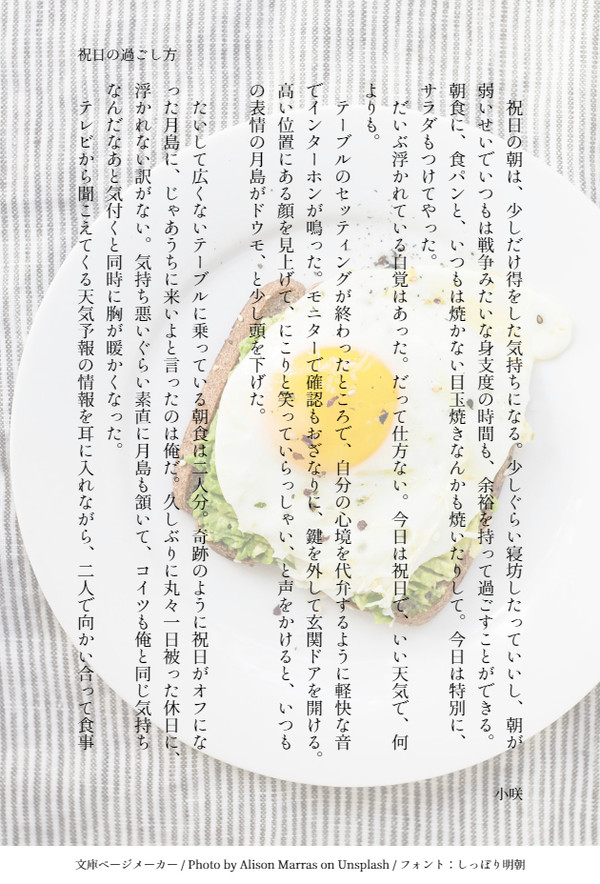 祝日の過ごし方
　祝日の朝は、少しだけ得をした気持ちになる。少しぐらい寝坊したっていいし、朝が
弱いせいでいつもは戦争みたいな身支度の時間も、余裕を持って過ごすことができる。
朝食に、食パンと、いつもは焼かない目玉焼きなんかも焼いたりして。今日は特別に、
サラダもつけてやった。
　だいぶ浮かれている自覚はあった。だって仕方ない。今日は祝日で、いい天気で、何
よりも。
　テーブルのセッティングが終わったところで、自分の心境を代弁するように軽快な音
でインターホンが鳴った。モニターで確認もおざなりに、鍵を外して玄関ドアを開ける。
高い位置にある顔を見上げて、にこりと笑っていらっしゃい、と声をかけると、いつも
の表情の月島がドウモ、と少し頭を下げた。
　たいして広くないテーブルに乗っている朝食は二人分。奇跡のように祝日がオフにな
った月島に、じゃあうちに来いよと言ったのは俺だ。久しぶりに丸々一日被った休日に、
浮かれない訳がない。気持ち悪いぐらい素直に月島も頷いて、コイツも俺と同じ気持ち
なんだなあと気付くと同時に胸が暖かくなった。
　テレビから聞こえてくる天気予報の情報を耳に入れながら、二人で向かい合って食事
小咲
文庫ページメーカー / Photo by Alison Marras on Unsplash / フォント：しっぽり明朝